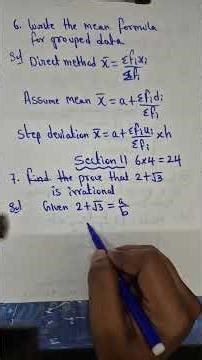 6. Write the mean formula
for grouped data
Sol Direct method x̄ = Σfixi/Σfi
Assume mean x̄ = a + Σfidi/Σfi
Step deviation x̄ = a + Σfiui/Σfi × h
Section 11 6x4=24
7. Find the prove that 2+√3
is irrational
Sol Given 2+√3 = a/b